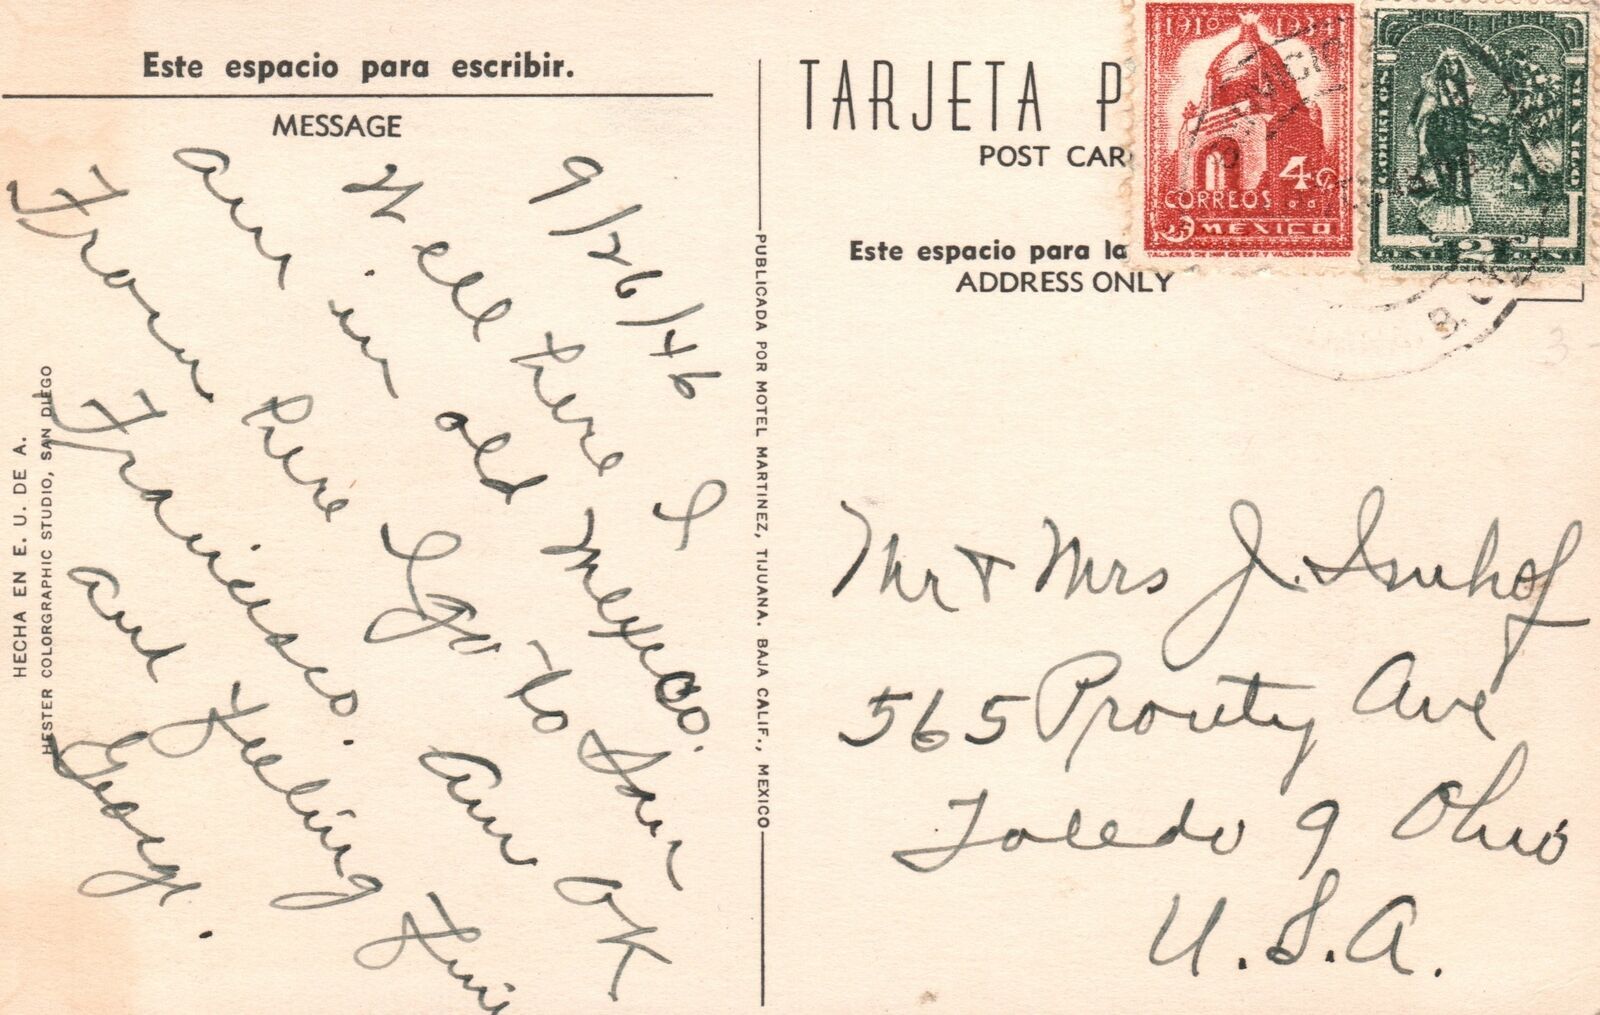 Este espacio para escribir.
MESSAGE
9/26/46
Well here I
am in old Mexico.
From here I go to San
Francisco. Am OK
and feeling fine
George.
HECHA EN E. U. DE A.
HESTER COLORGRAPHIC STUDIO, SAN DIEGO
PUBLICADA POR MOTEL MARTINEZ, TIJUANA. BAJA CALIF., MEXICO
TARJETA P
POST CAR
Este espacio para la
ADDRESS ONLY
1910 1934
4c
CORREOS
MEXICO
CORREOS
2
Mr + Mrs J. Isuhof
565 Prouty Ave
Toledo 9 Ohio
U.S.A.